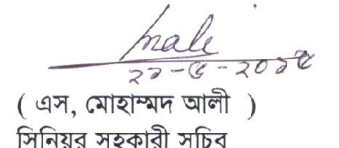 ২১-৫-২০১৫
( এস, মোহাম্মদ আলী )
সিনিয়র সহকারী সচিব